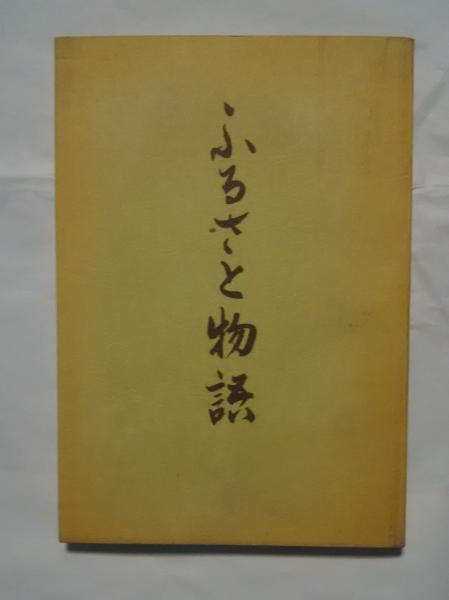 ふるさと物語